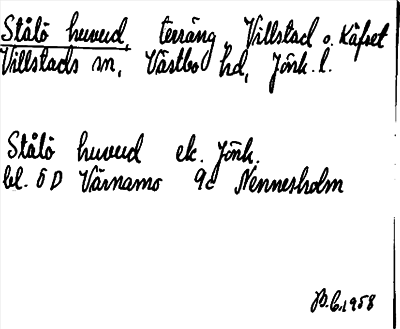 Stålö huvud, terräng, Villstad o. Kåfset
Villstads sn, Västbo hd, Jönk. l.
Stålö huvud ek. Jönk.
bl. 5 D Värnamo 9c Nennesholm
B.C. 1958